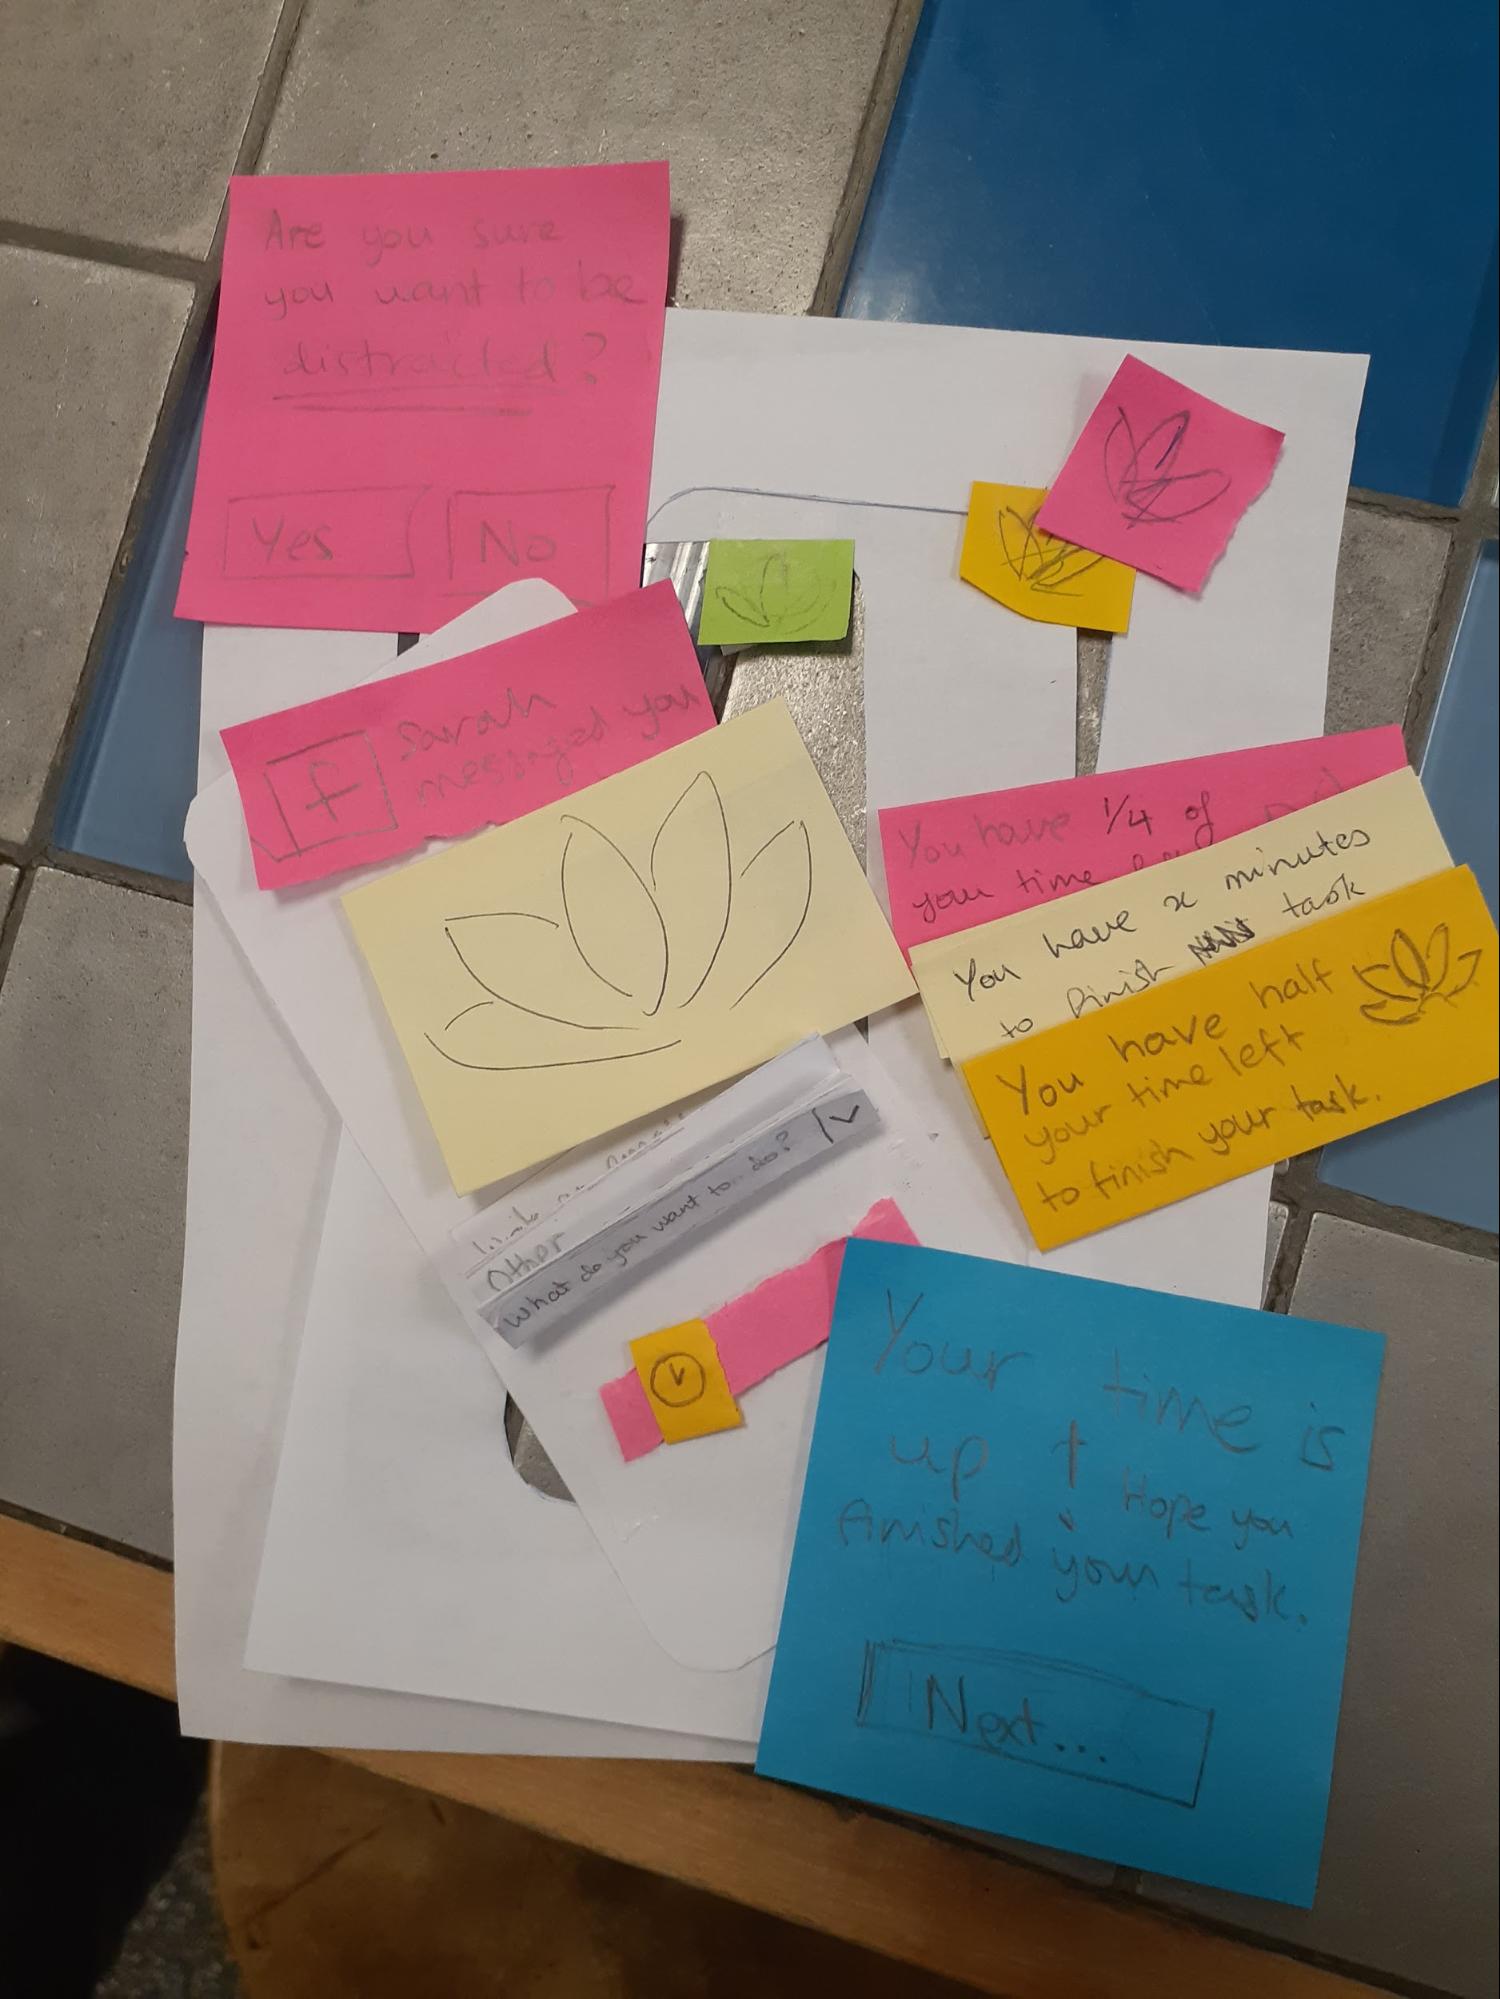 Are you sure
you want to be
distracted?
Yes
No
f
Sarah
messaged you
You have 1/4 of
your time
You have x minutes
to finish task
You have half
your time left
to finish your task.
Other
What do you want to do?
Your time is
up ! Hope you
finished your task.
Next...